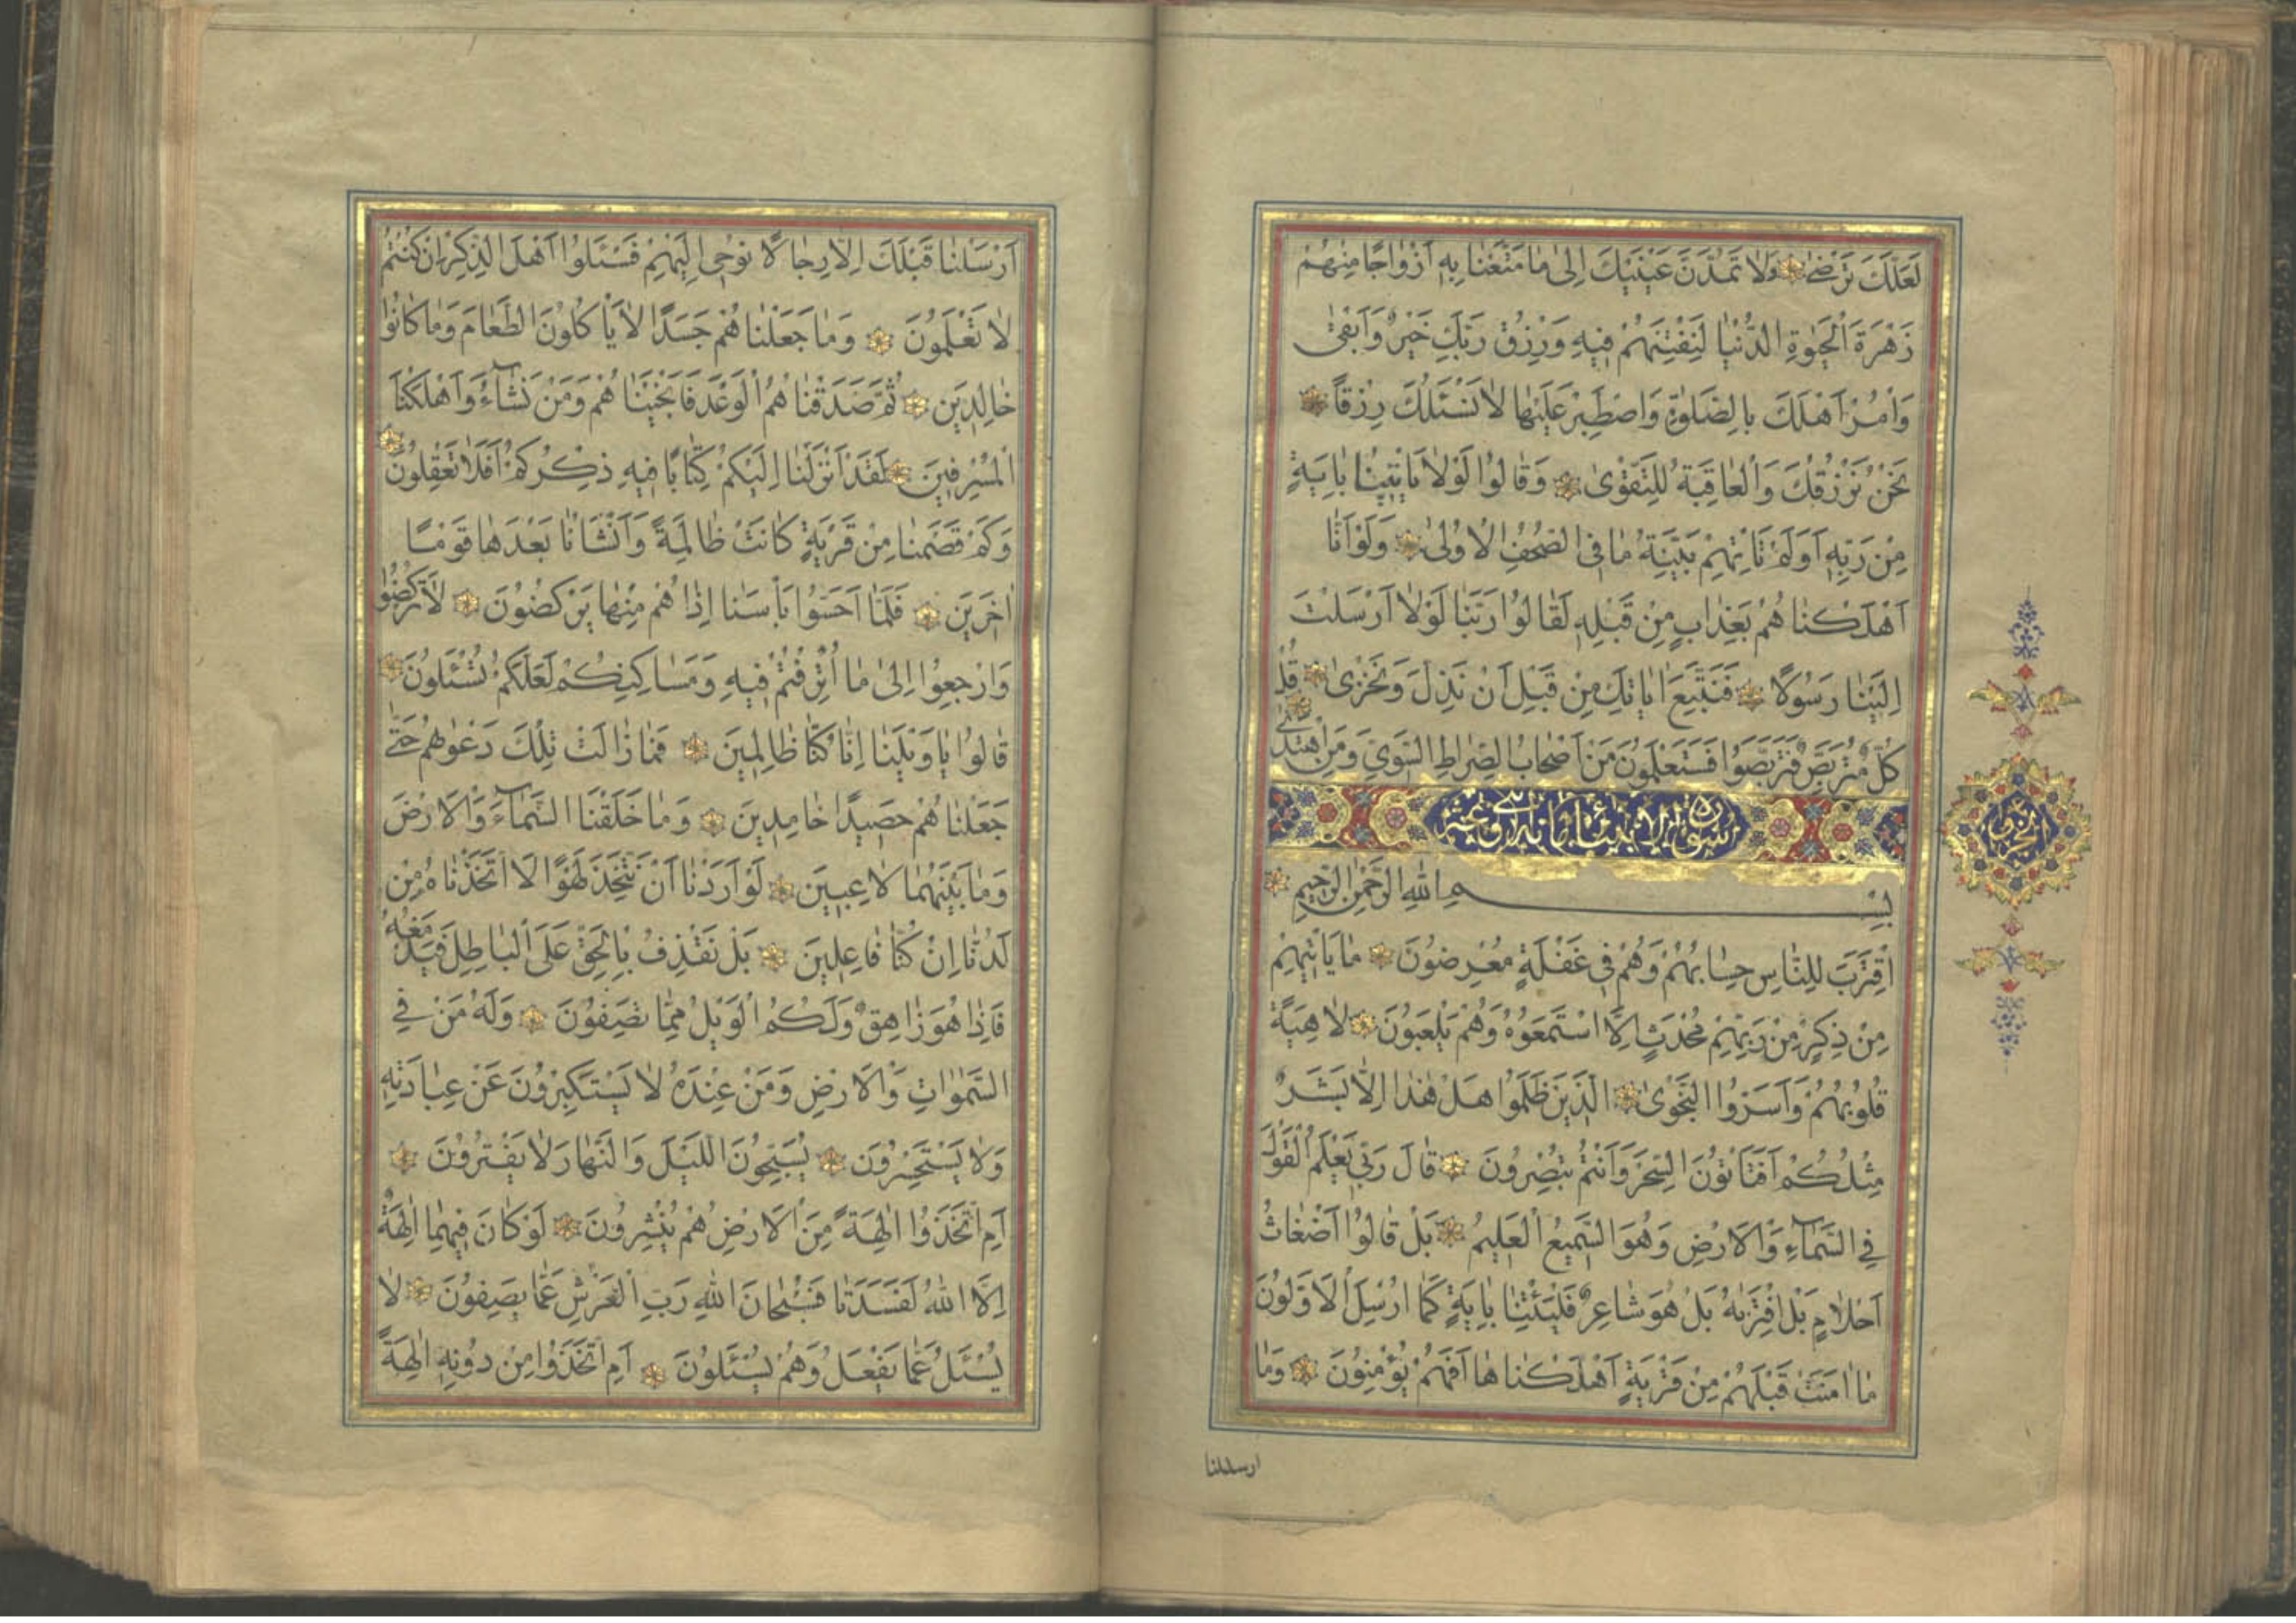 لَعَلَّكَ تَرْضٰى وَلَا تَمُدَّنَّ عَيْنَيْكَ اِلٰى مَا مَتَّعْنَا بِهِ اَزْوَاجًا مِنْهُمْ
زَهْرَةَ الْحَيٰوةِ الدُّنْيَا لِنَفْتِنَهُمْ فِيهِ وَرِزْقُ رَبِّكَ خَيْرٌ وَاَبْقٰى
وَأْمُرْ اَهْلَكَ بِالصَّلٰوةِ وَاصْطَبِرْ عَلَيْهَا لَا نَسْئَلُكَ رِزْقًا
نَحْنُ نَرْزُقُكَ وَالْعَاقِبَةُ لِلتَّقْوٰى وَقَالُوا لَوْلَا يَأْتِينَا بِاٰيَةٍ
مِنْ رَبِّهِ اَوَلَمْ تَأْتِهِمْ بَيِّنَةُ مَا فِي الصُّحُفِ الْاُولٰى وَلَوْ اَنَّا
اَهْلَكْنَاهُمْ بِعَذَابٍ مِنْ قَبْلِهِ لَقَالُوا رَبَّنَا لَوْلَا اَرْسَلْتَ
اِلَيْنَا رَسُولًا فَنَتَّبِعَ اٰيَاتِكَ مِنْ قَبْلِ اَنْ نَذِلَّ وَنَخْزٰى قُلْ
كُلٌّ مُتَرَبِّصٌ فَتَرَبَّصُوا فَسَتَعْلَمُونَ مَنْ اَصْحَابُ الصِّرَاطِ السَّوِيِّ وَمَنِ اهْتَدٰى
سورة الانبياء مائة و عشر
بِسْمِ اللهِ الرَّحْمٰنِ الرَّحِيمِ
اِقْتَرَبَ لِلنَّاسِ حِسَابُهُمْ وَهُمْ فِي غَفْلَةٍ مُعْرِضُونَ مَا يَأْتِيهِمْ
مِنْ ذِكْرٍ مِنْ رَبِّهِمْ مُحْدَثٍ اِلَّا اسْتَمَعُوهُ وَهُمْ يَلْعَبُونَ لَاهِيَةً
قُلُوبُهُمْ وَاَسَرُّوا النَّجْوٰى الَّذِينَ ظَلَمُوا هَلْ هٰذَا اِلَّا بَشَرٌ
مِثْلُكُمْ اَفَتَأْتُونَ السِّحْرَ وَاَنْتُمْ تُبْصِرُونَ قَالَ رَبِّي يَعْلَمُ الْقَوْلَ
فِي السَّمَآءِ وَالْاَرْضِ وَهُوَ السَّمِيعُ الْعَلِيمُ بَلْ قَالُوا اَضْغَاثُ
اَحْلَامٍ بَلِ افْتَرٰيهُ بَلْ هُوَ شَاعِرٌ فَلْيَأْتِنَا بِاٰيَةٍ كَمَا اُرْسِلَ الْاَوَّلُونَ
مَا اٰمَنَتْ قَبْلَهُمْ مِنْ قَرْيَةٍ اَهْلَكْنَاهَا اَفَهُمْ يُؤْمِنُونَ وَمَا
ارسلنا
اَرْسَلْنَا قَبْلَكَ اِلَّا رِجَالًا نُوحِي اِلَيْهِمْ فَسْئَلُوا اَهْلَ الذِّكْرِ اِنْ كُنْتُمْ
لَا تَعْلَمُونَ وَمَا جَعَلْنَاهُمْ جَسَدًا لَا يَأْكُلُونَ الطَّعَامَ وَمَا كَانُوا
خَالِدِينَ ثُمَّ صَدَقْنَاهُمُ الْوَعْدَ فَاَنْجَيْنَاهُمْ وَمَنْ نَشَآءُ وَاَهْلَكْنَا
الْمُسْرِفِينَ لَقَدْ اَنْزَلْنَا اِلَيْكُمْ كِتَابًا فِيهِ ذِكْرُكُمْ اَفَلَا تَعْقِلُونَ
وَكَمْ قَصَمْنَا مِنْ قَرْيَةٍ كَانَتْ ظَالِمَةً وَاَنْشَأْنَا بَعْدَهَا قَوْمًا
اٰخَرِينَ فَلَمَّا اَحَسُّوا بَأْسَنَا اِذَا هُمْ مِنْهَا يَرْكُضُونَ لَا تَرْكُضُوا
وَارْجِعُوا اِلٰى مَا اُتْرِفْتُمْ فِيهِ وَمَسَاكِنِكُمْ لَعَلَّكُمْ تُسْئَلُونَ
قَالُوا يَا وَيْلَنَا اِنَّا كُنَّا ظَالِمِينَ فَمَا زَالَتْ تِلْكَ دَعْوٰيهُمْ حَتّٰى
جَعَلْنَاهُمْ حَصِيدًا خَامِدِينَ وَمَا خَلَقْنَا السَّمَآءَ وَالْاَرْضَ
وَمَا بَيْنَهُمَا لَاعِبِينَ لَوْ اَرَدْنَا اَنْ نَتَّخِذَ لَهْوًا لَاتَّخَذْنَاهُ مِنْ
لَدُنَّا اِنْ كُنَّا فَاعِلِينَ بَلْ نَقْذِفُ بِالْحَقِّ عَلَى الْبَاطِلِ فَيَدْمَغُهُ
فَاِذَا هُوَ زَاهِقٌ وَلَكُمُ الْوَيْلُ مِمَّا تَصِفُونَ وَلَهُ مَنْ فِي
السَّمٰوَاتِ وَالْاَرْضِ وَمَنْ عِنْدَهُ لَا يَسْتَكْبِرُونَ عَنْ عِبَادَتِهِ
وَلَا يَسْتَحْسِرُونَ يُسَبِّحُونَ اللَّيْلَ وَالنَّهَارَ لَا يَفْتُرُونَ
اَمِ اتَّخَذُوا اٰلِهَةً مِنَ الْاَرْضِ هُمْ يُنْشِرُونَ لَوْ كَانَ فِيهِمَا اٰلِهَةٌ
اِلَّا اللهُ لَفَسَدَتَا فَسُبْحَانَ اللهِ رَبِّ الْعَرْشِ عَمَّا يَصِفُونَ لَا
يُسْئَلُ عَمَّا يَفْعَلُ وَهُمْ يُسْئَلُونَ اَمِ اتَّخَذُوا مِنْ دُونِهِ اٰلِهَةً